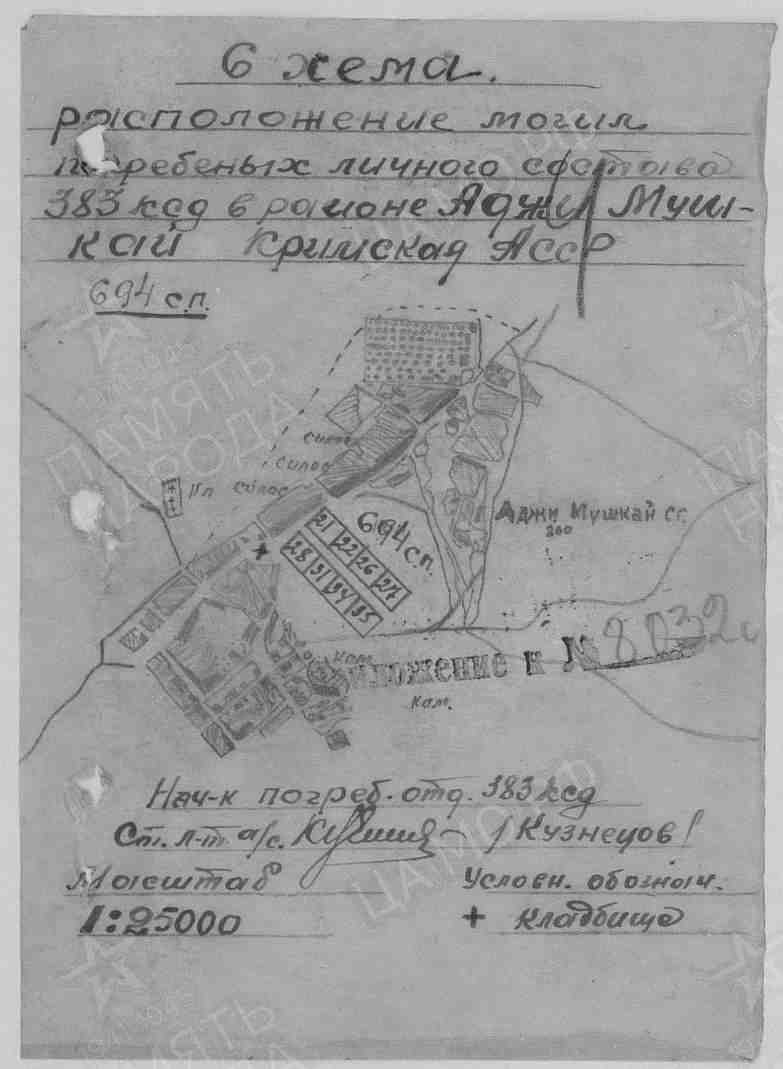 Схема.
расположение могил
погребеных личного состава
383 ксд в районе Аджи Муш-
кай Кримская АССР
694 с.п.
силос
силос
силос
Аджи Мушкай сг.
200
694 с.п.
21 22 26 27
28 31 34 35
кам.
Приложение к № 8032с
кам.
Нач-к погреб. отд. 383 ксд
Ст. л-т а/с. /Кузнецов/
Масштаб
1:25000
Условн. обознач.
+ кладбище
ПАМЯТЬ
НАРОДА
ЦАМО РФ